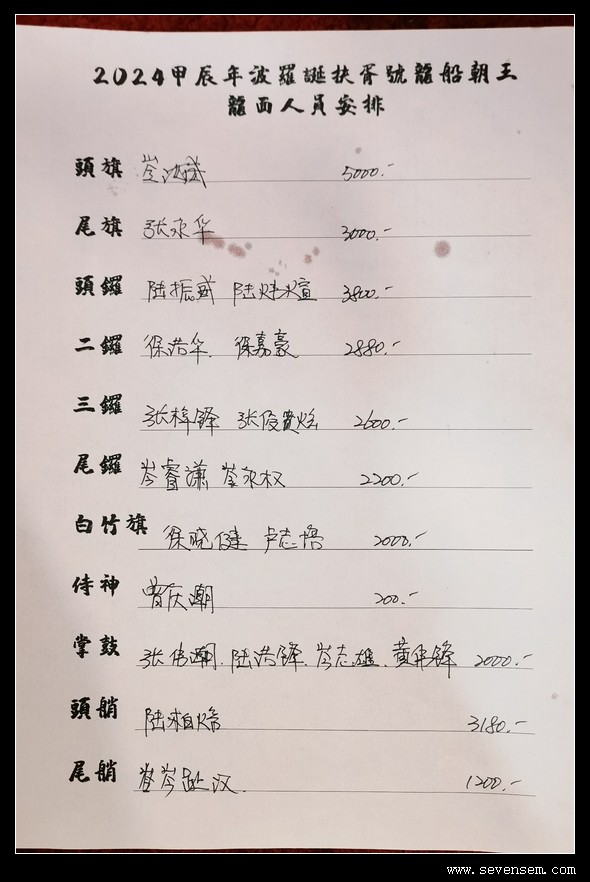 2024甲辰年波羅誕扶胥號龍船朝王
龍面人員安排
頭旗 岑 5000.-
尾旗 张永华 3000.-
頭鑼 陆振威 陆炜煊 3800.-
二鑼 徐浩华 徐嘉豪 2880.-
三鑼 张梓锋 张俊 2600.-
尾鑼 岑睿潇 岑永权 2200.-
白竹旗 徐晓健 卢志 2000.-
侍神 曾庆潮 200.-
掌鼓 张伟潮. 陆浩锋. 岑志雄. 黄伟锋 2000.-
頭艄 陆 3180.-
尾艄 岑 汉. 1200.-
www.sevensem.com